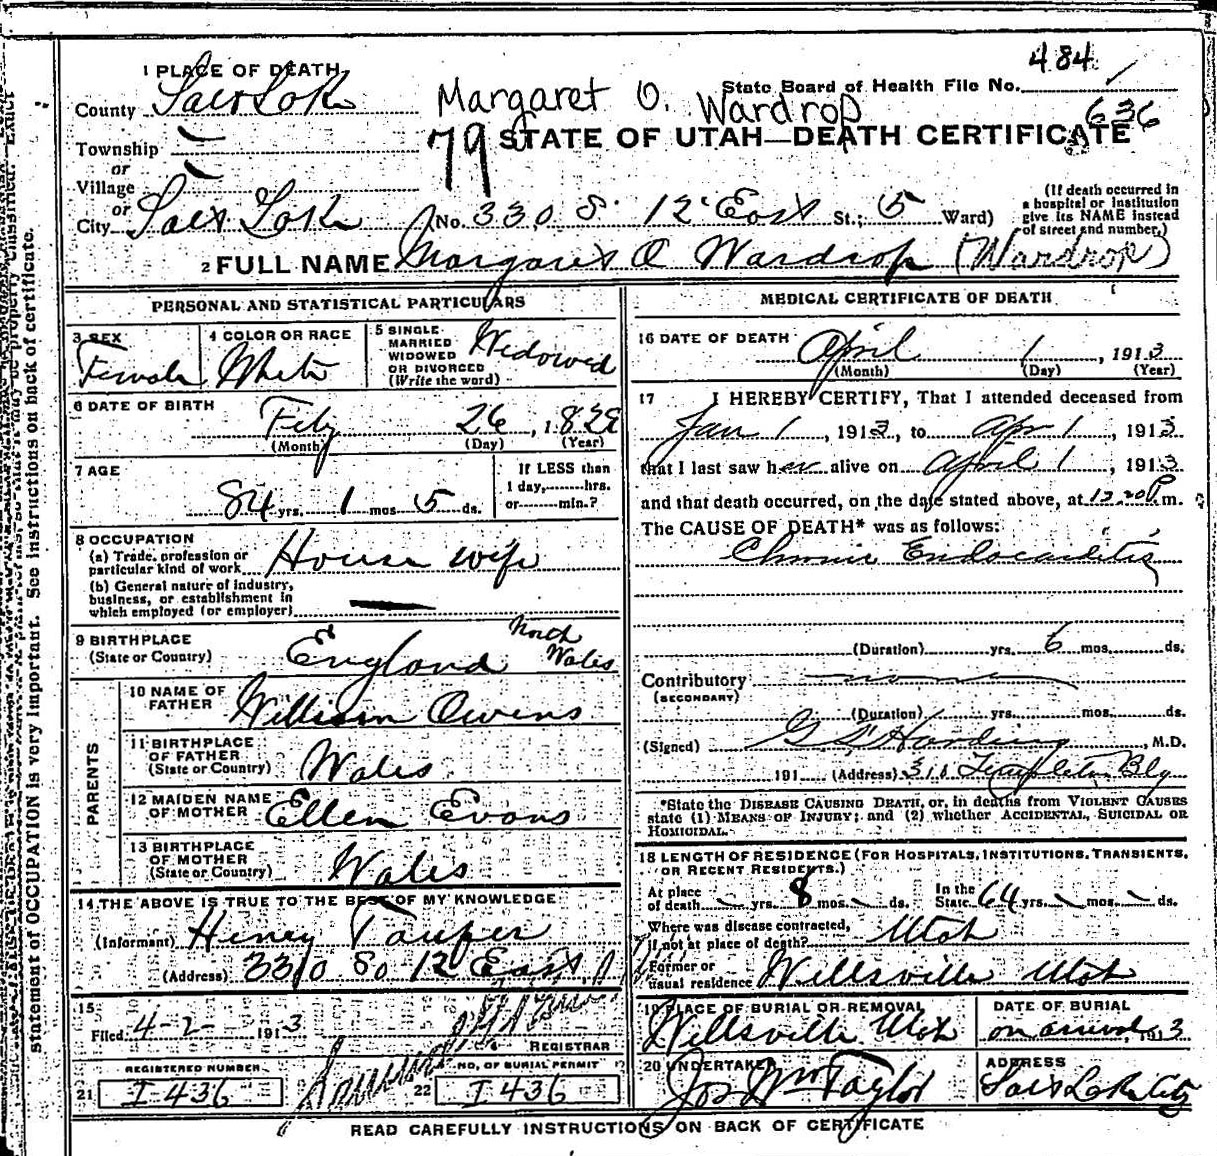 484
1 PLACE OF DEATH
State Board of Health File No.
County Salt Lake
Margaret O. Wardrop
636
Township
79 STATE OF UTAH—DEATH CERTIFICATE
or
Village
or
City Salt Lake (No. 330 S. 12 East St.; 5 Ward)
(If death occurred in
a hospital or institution
give its NAME instead
of street and number.)
2 FULL NAME Margaret O Wardrop (Wardrop)
PERSONAL AND STATISTICAL PARTICULARS
3 SEX
Female
4 COLOR OR RACE
White
5 SINGLE
MARRIED
WIDOWED
OR DIVORCED
(Write the word)
Widowed
6 DATE OF BIRTH
Feby 26, 1828
(Month) (Day) (Year)
7 AGE
84 yrs. 1 mos 5 ds.
If LESS than
1 day, hrs.
or min.?
8 OCCUPATION
(a) Trade, profession or
particular kind of work House wife
(b) General nature of industry,
business, or establishment in
which employed (or employer)
9 BIRTHPLACE
(State or Country) England North Wales
PARENTS
10 NAME OF
FATHER William Owens
11 BIRTHPLACE
OF FATHER
(State or Country) Wales
12 MAIDEN NAME
OF MOTHER Ellen Evans
13 BIRTHPLACE
OF MOTHER
(State or Country) Wales
14 THE ABOVE IS TRUE TO THE BEST OF MY KNOWLEDGE
(Informant) Henry
(Address) 330 So 12 East
15
Filed 4-2- 1913
REGISTRAR
REGISTERED NUMBER
21 I-436
NO. OF BURIAL PERMIT
22 I-436
MEDICAL CERTIFICATE OF DEATH
16 DATE OF DEATH
April 1, 1913
(Month) (Day) (Year)
17 I HEREBY CERTIFY, That I attended deceased from
Jan 1, 1913, to Apr 1, 1913
that I last saw her alive on April 1, 1913
and that death occurred, on the date stated above, at 12.20 P.m.
The CAUSE OF DEATH* was as follows:
Chronic Endocarditis
(Duration) yrs. 6 mos. ds.
Contributory none
(SECONDARY)
(Duration) yrs. mos. ds.
(Signed) G S Harding, M.D.
191 (Address) 310 Templeton Blg
*State the DISEASE CAUSING DEATH, or, in deaths from VIOLENT CAUSES
state (1) MEANS OF INJURY; and (2) whether ACCIDENTAL, SUICIDAL OR
HOMICIDAL.
18 LENGTH OF RESIDENCE (FOR HOSPITALS, INSTITUTIONS, TRANSIENTS,
OR RECENT RESIDENTS.)
At place
of death - yrs. 8 mos. - ds.
In the
State 64 yrs. - mos. - ds.
Where was disease contracted,
if not at place of death? Utah
Former or
usual residence Wellsville Utah
19 PLACE OF BURIAL OR REMOVAL
Wellsville Utah
DATE OF BURIAL
on arrival, 1913
20 UNDERTAKER
Jos Wm Taylor
ADDRESS
Salt Lake City
READ CAREFULLY INSTRUCTIONS ON BACK OF CERTIFICATE
statement of OCCUPATION is very important. See instructions on back of certificate.